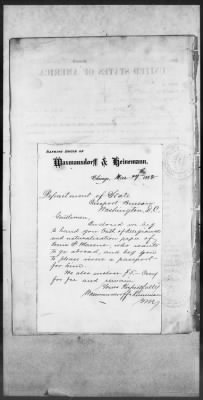 UNITED STATES OF AMERICA
BANKING HOUSE OF
Wasmansdorff & Heinemann.
Chicago,
Department of State
Passport Bureau
Washington, D.C.
Gentlemen,
Enclosed we beg
to hand you Oath of Allegiance
and naturalization paper of
who wants
to go abroad, and beg you
to please issue a passport
for him.
We also enclose $5.
for fee and remain
Yours Respectfully
Wasmansdorff & Heinemann